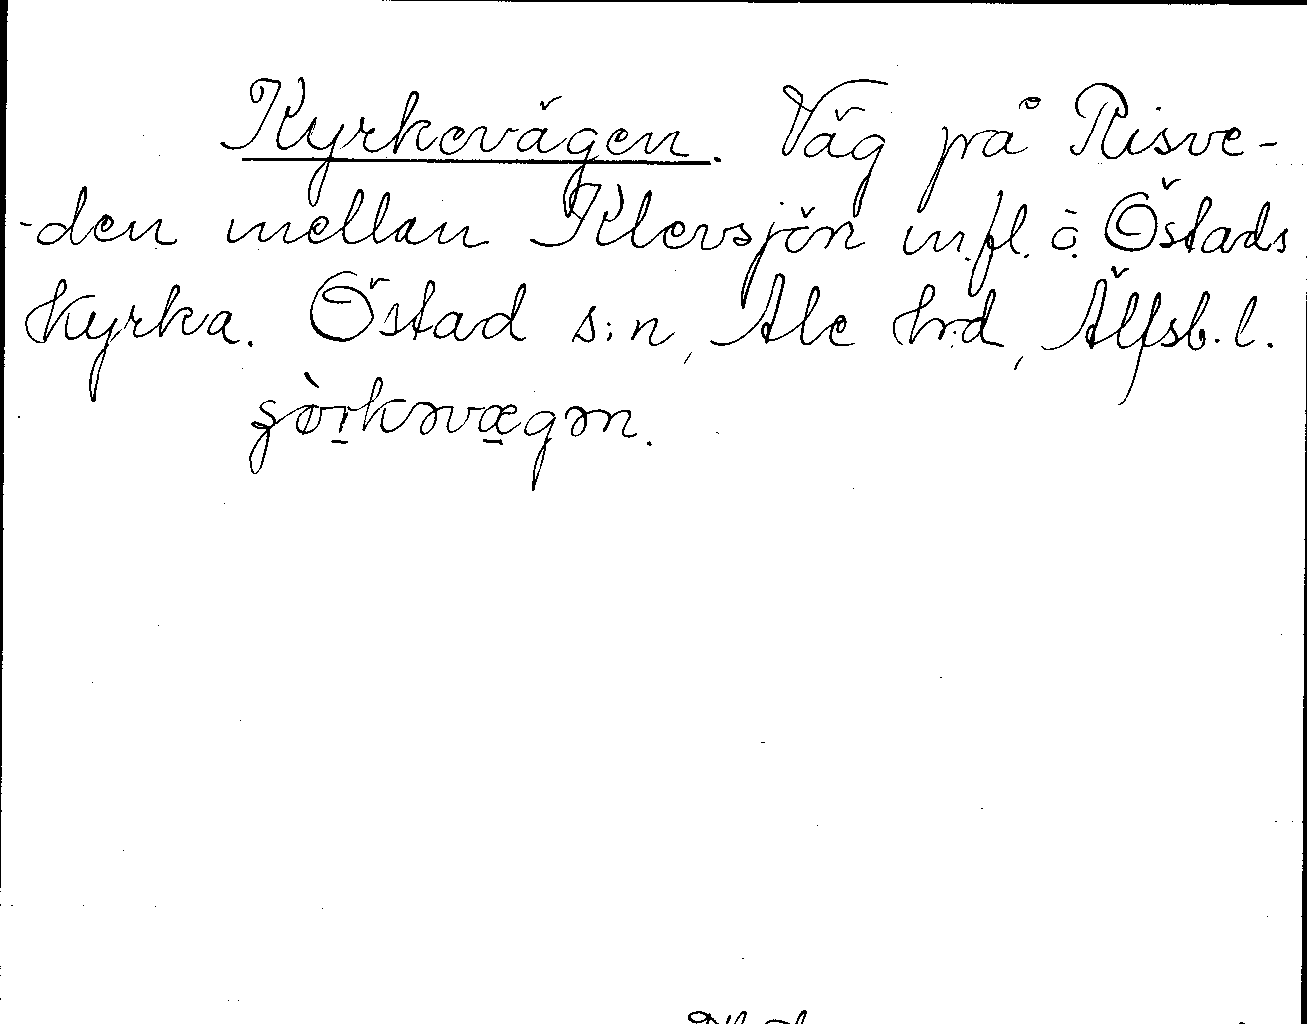 Kyrkevägen. Väg på Risve-
-den mellan Klevsjön m.fl. o. Östads
Kyrka. Östad s:n, Ale hrd, Älfsb. l.